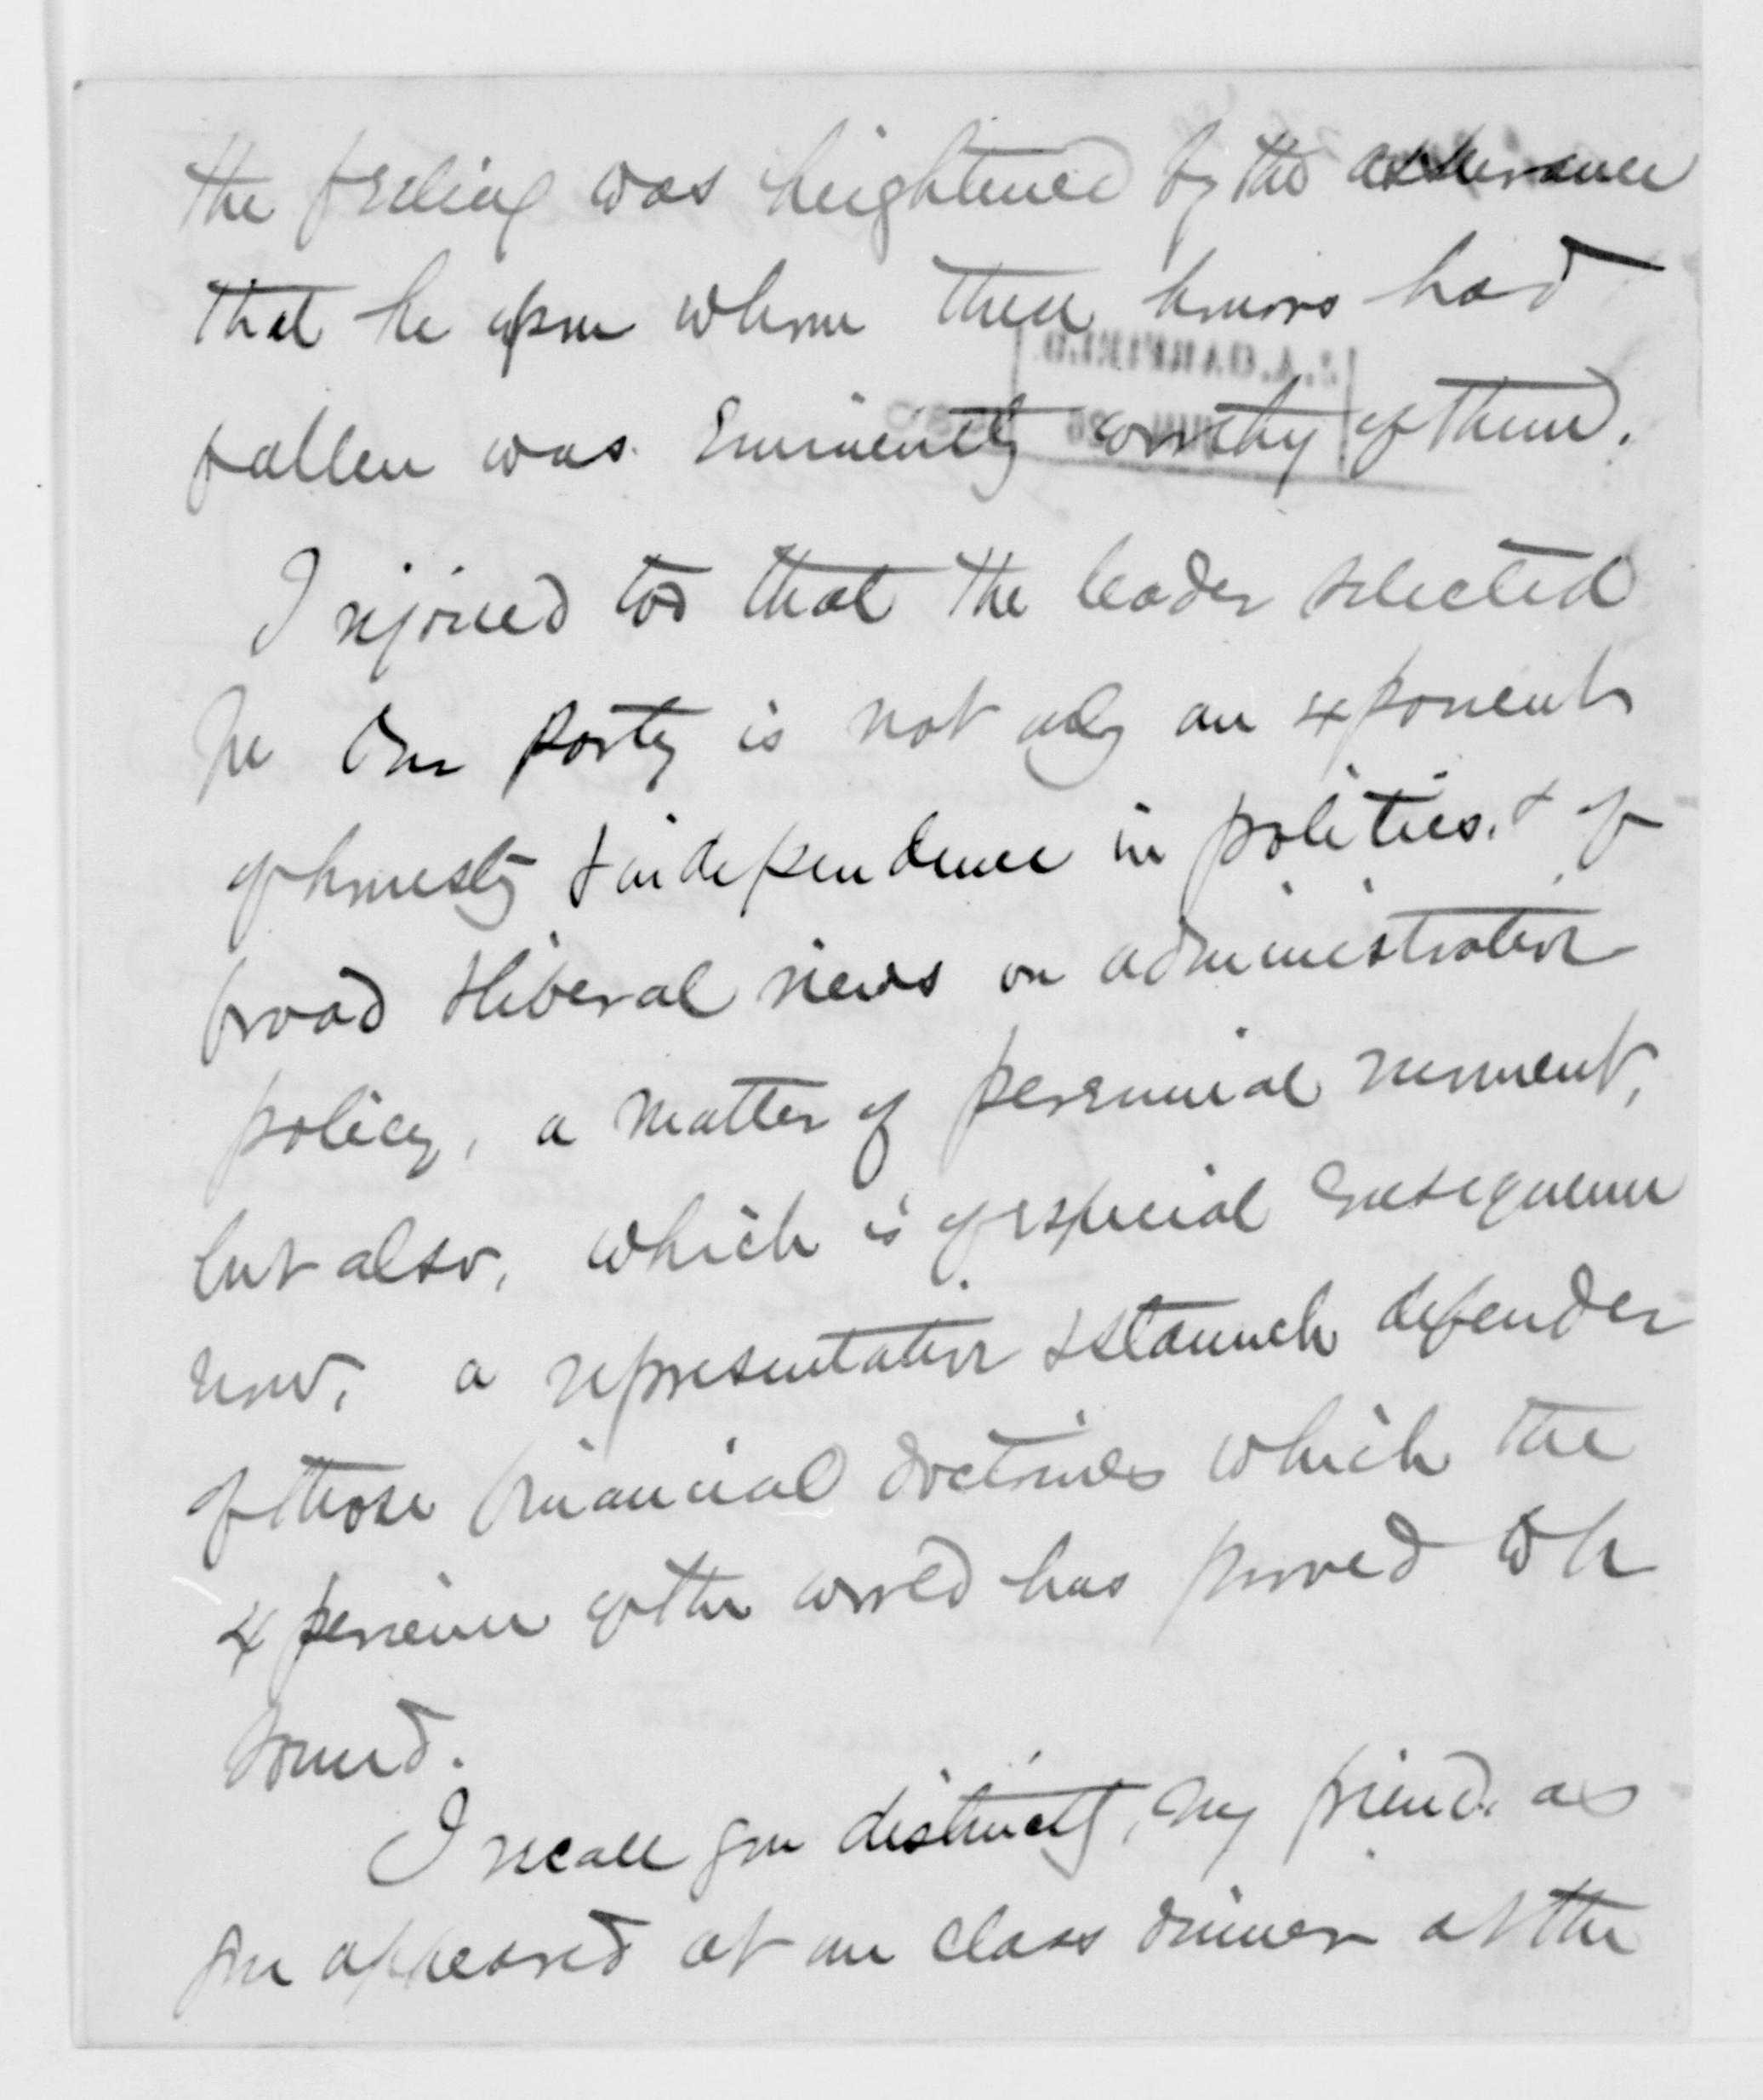 the feeling was heightened by the assurance
that he upon whom these honors had
J.A.GARFIELD.
fallen was Eminently worthy of them.
I rejoiced too that the leader selected
for Our party is not only an exponent
of honesty & independence in politics, & of
broad & liberal views on administrative
policy, a matter of perennial moment,
but also, which is of especial consequence
now, a representative & staunch defender
of those financial doctrines which the
experience of the world has proved to be
sound.
I recall you distinctly, my friend, as
you appeared at our class dinner at the